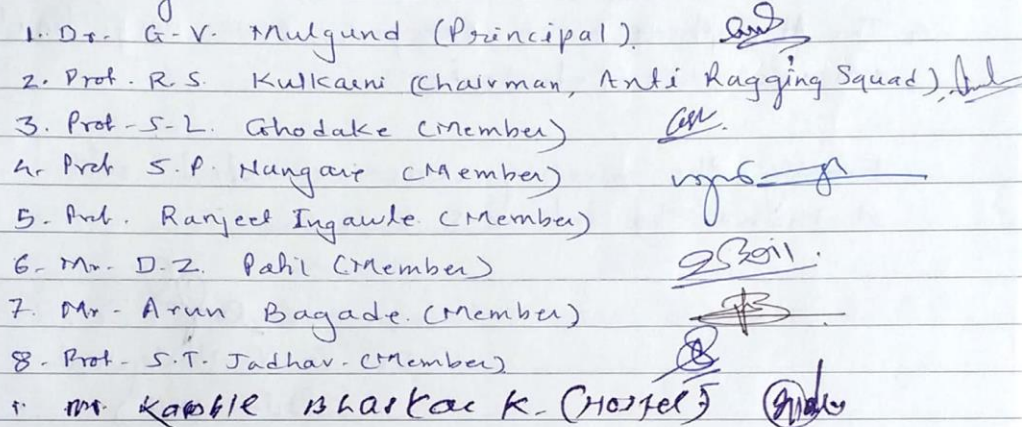 1. Dr. G.V. Mulgund (Principal).
2. Prof. R.S. Kulkarni (Chairman, Anti Ragging Squad),
3. Prof-S-L. Ghodake (Member)
4. Prof S.P. Nangare (Member)
5. Prof. Ranjeet Ingawle. (Member)
6- Mr- D.Z. Patil (Member)
7. Mr- Arun Bagade. (Member)
8. Prof- S.T. Jadhav. (Member)
Mr. Kamble Bhaskar K. (Hostel)